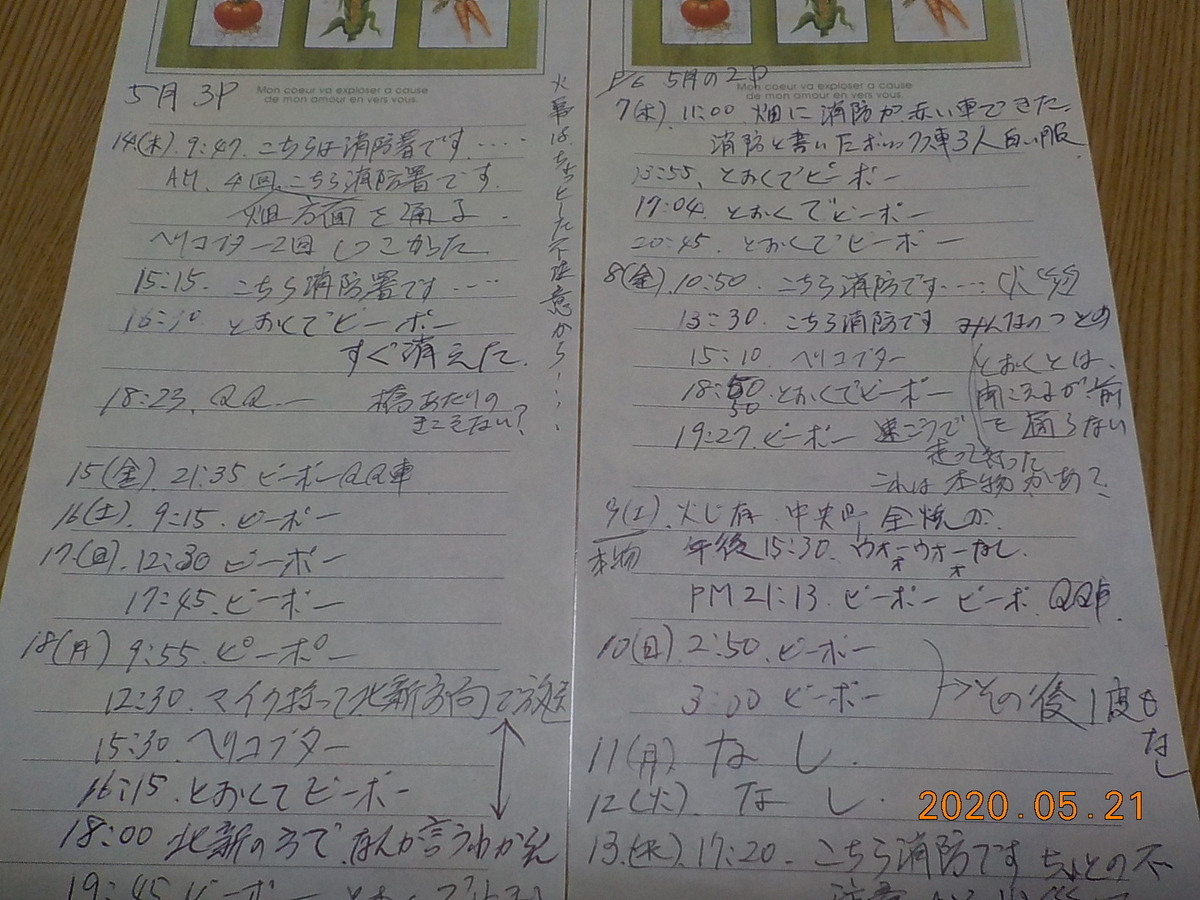 5月 3P
Mon coeur va exploser a cause
de mon amour en vers vous.
14(木) 9:47. こちらは消防署です.....
AM. 4回、こちら消防署です.
畑方面を通る.
ヘリコプター2回 しつこかった.
15:15. こちら消防署です....
16:30 とおくでピーポー
すぐ消えた.
18:23. QQー 橋あたりの
きこえない?
15(金). 21:35 ピーポーQQ車
16(土). 9:15. ピーポー
17(日). 12:30 ピーポー
17:45. ピーポー
18(月) 9:55. ピーポー
12:30. マイク持って北新方向で放送
15:30 ヘリコプター
16:15. とおくでピーポー
18:00 北新の方で、なんか言うわかえん
19:45 ピーポー
火事はちょっとした不注意から......
P/6 5月の2P
Mon coeur va exploser a cause
de mon amour en vers vous.
7(木). 11:00 畑に消防が赤い車できた.
消防と書いたボックス車3人白い服
13:55. とおくでピーポー
17:04. とおくでピーポー
20:45. とおくでピーポー
8(金). 10:50. こちら消防です....
13:30. こちら消防です みんなのつとめ
15:10 ヘリコプター
18:50 とおくでピーポー
50
19:27. ピーポー 遠こうで
走って行った
これは本物かあ?
とおくとは、
聞こえるが前
を通らない
9(土). 火じ有. 中央町 全焼か.
本物 午後15:30. ウオーウオーなし.
PM 21:13. ピーポー ピーポ. QQ車.
10(日) 2:50. ピーポー
3:00 ピーポー
→その後1度も
なし
11(月) なし.
12(火). なし.
13.(水). 17:20. こちら消防です ちょっとの不
注意
2020.05.21